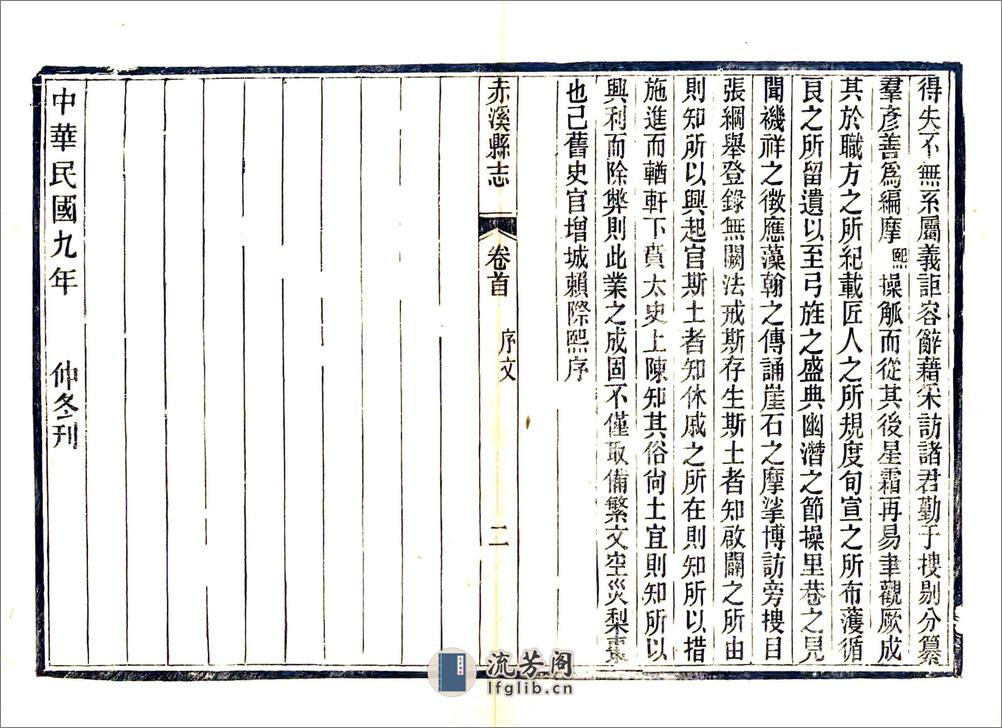 得失不無系屬義詎容辭藉采訪諸君勤于搜剔分纂
羣彥善爲編摩熙操觚而從其後星霜再易聿觀厥成
其於職方之所紀載匠人之所規度旬宣之所布濩循
良之所留遺以至弓旌之盛典幽潛之節操里巷之見
聞禨祥之徵應藻翰之傳誦崖石之摩挲博訪旁搜目
張綱舉登錄無闕法戒斯存生斯土者知啟闢之所由
則知所以興起官斯土者知休戚之所在則知所以措
施進而輶軒下賁太史上陳知其俗尙土宜則知所以
興利而除弊則此業之成固不僅取備繁文空災梨棗
也已舊史官增城賴際熙序
赤溪縣志 卷首 序文 二
中華民國九年 仲冬刊
流芳阁
lfglib.cn